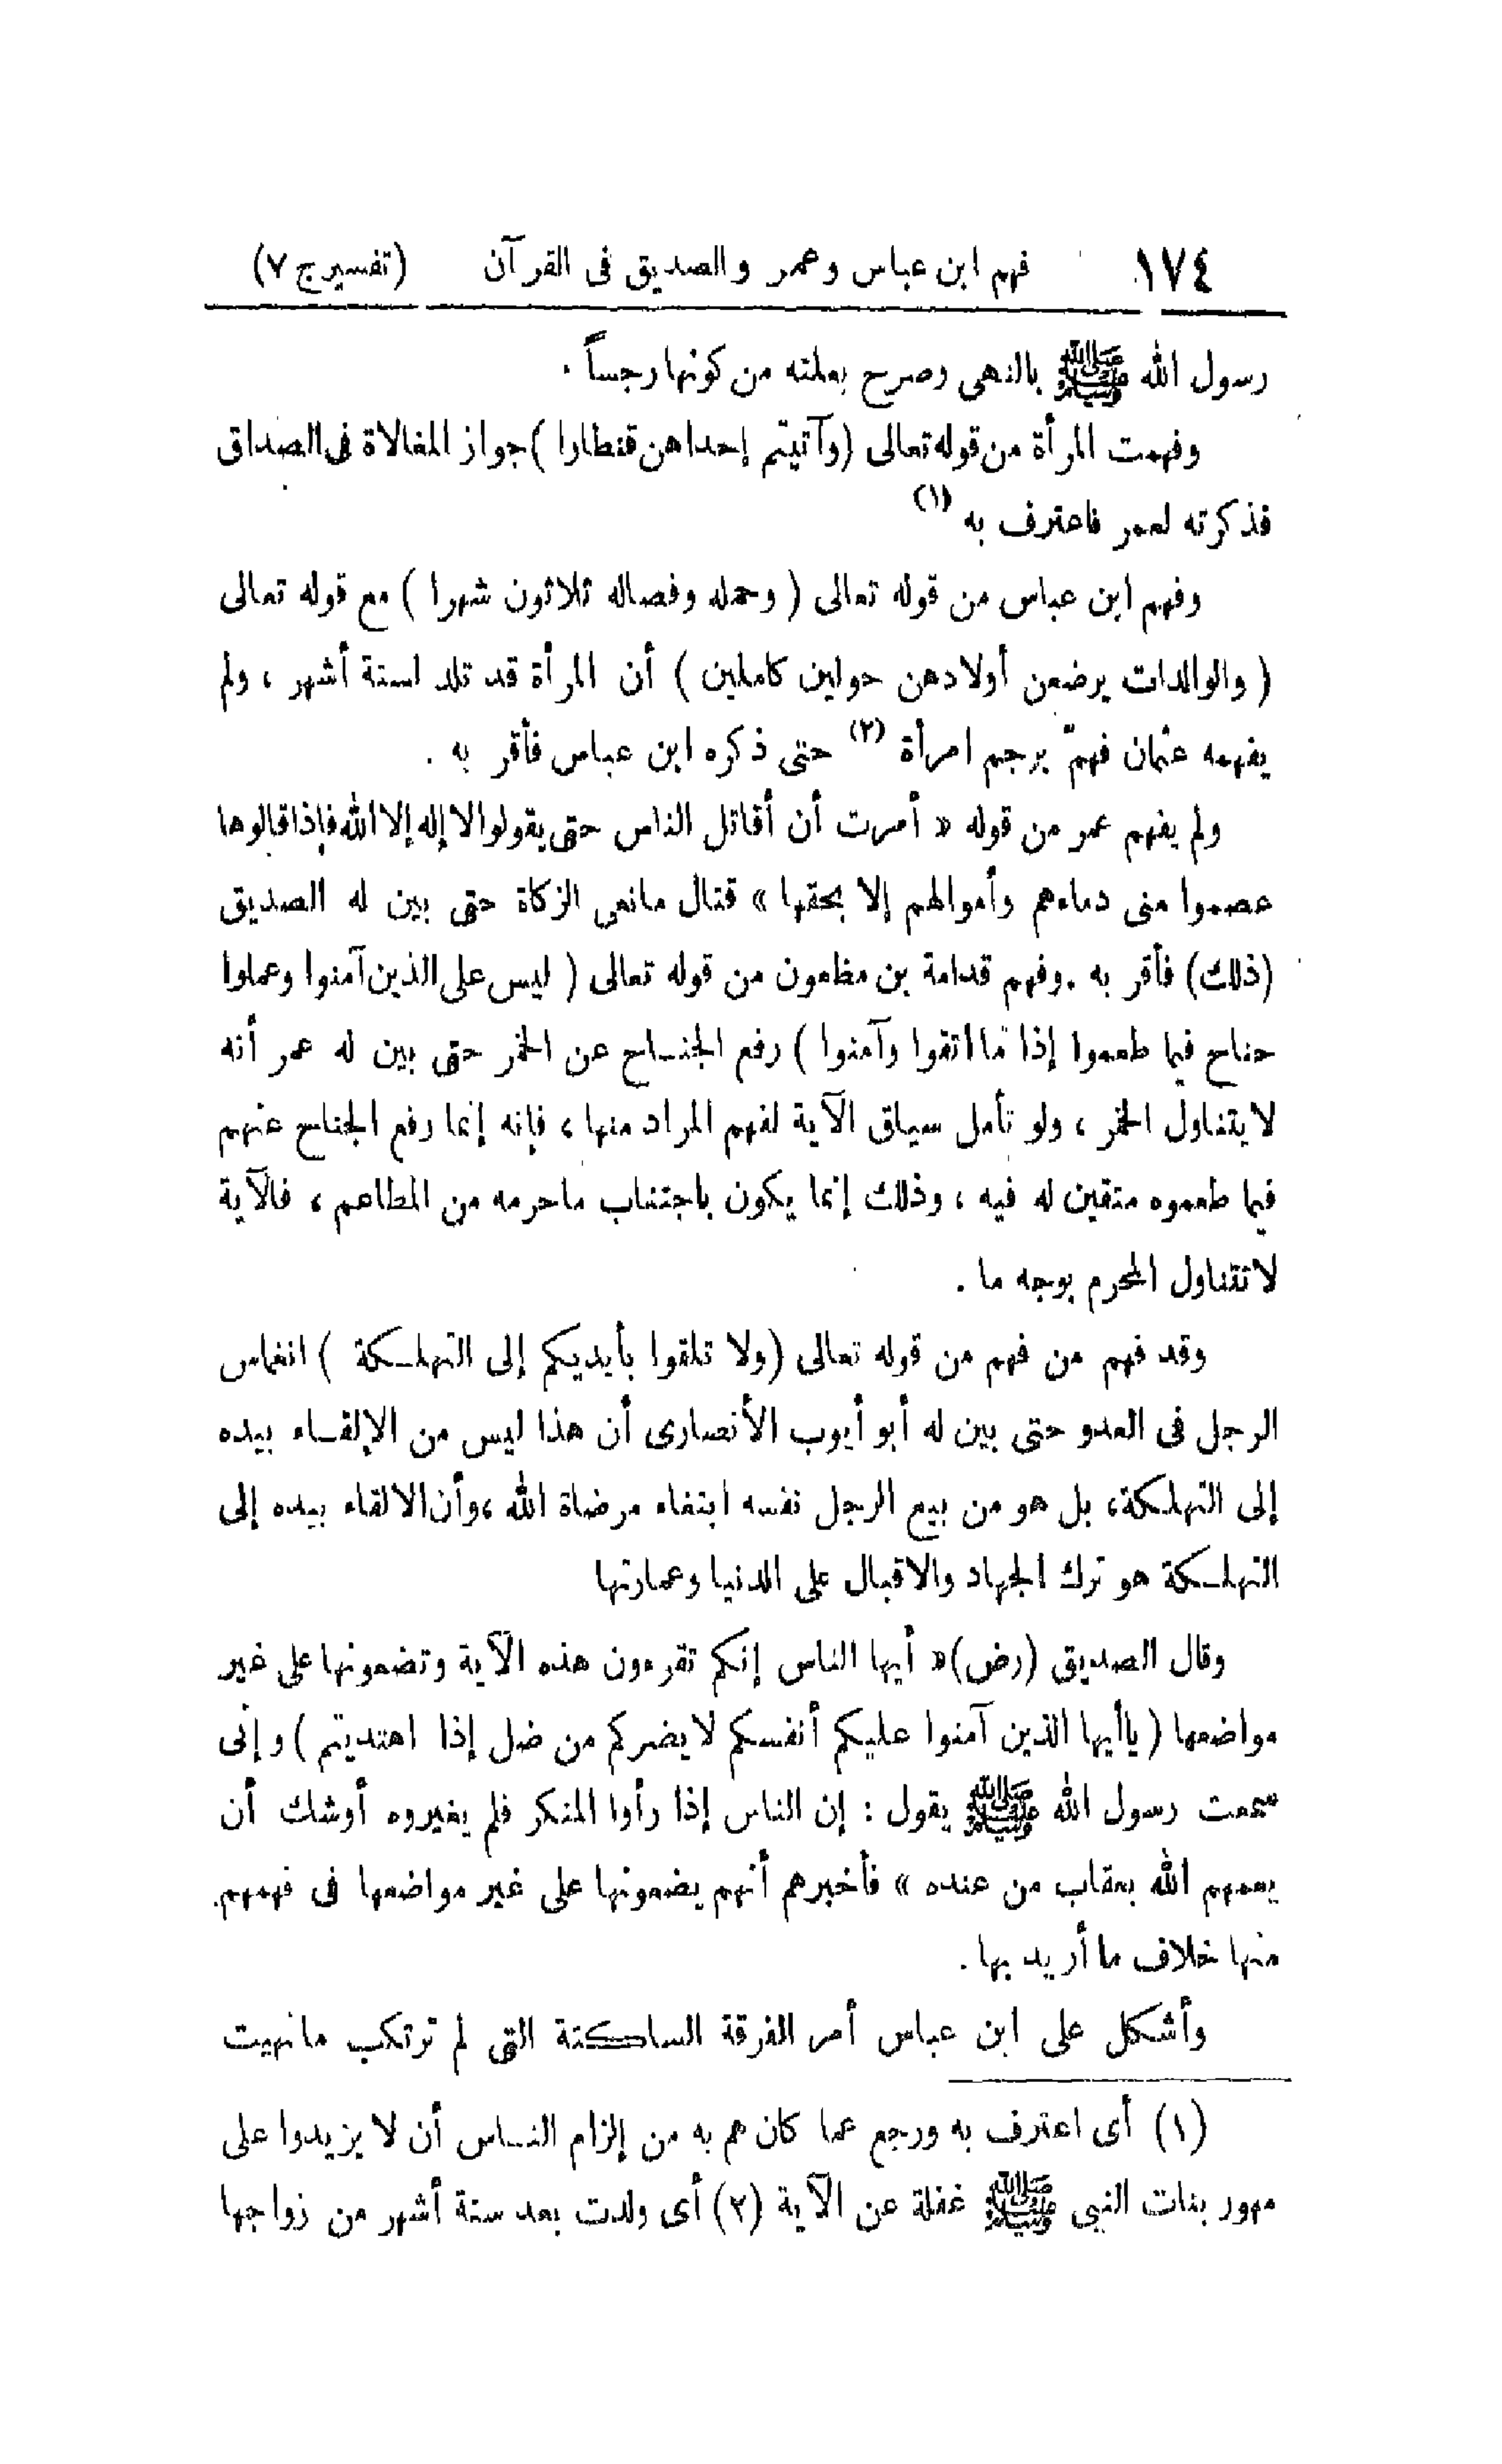 ١٧٤ فهم ابن عباس وعمر والصديق فى القرآن (تفسير ج ٧)
رسول الله ﷺ بالنهى وصرح بعلته من كونها رجساً .
وفهمت المرأة من قوله تعالى (وآتيتم إحداهن قنطارا) جواز المغالاة فى الصداق
فذكرته لعمر فاعترف به (١)
وفهم ابن عباس من قوله تعالى ( وحمله وفصاله ثلاثون شهرا ) مع قوله تعالى
( والوالدات يرضعن أولادهن حولين كاملين ) أن المرأة قد تلد لستة أشهر ، ولم
يفهمه عثمان فهمّ برجم امرأة (٢) حتى ذكره ابن عباس فأقر به .
ولم يفهم عمر من قوله « أمرت أن أقاتل الناس حتى يقولوا لا إله إلا الله فإذا قالوها
عصموا منى دماءهم وأموالهم إلا بحقها » قتال مانعى الزكاة حتى بين له الصديق
(ذلك) فأقر به . وفهم قدامة بن مظعون من قوله تعالى ( ليس على الذين آمنوا وعملوا
جناح فيما طعموا إذا ما اتقوا وآمنوا ) رفع الجنـاح عن الخمر حتى بين له عمر أنه
لا يتناول الخمر ، ولو تأمل سياق الآية لفهم المراد منها ، فإنه إنما رفع الجناح عنهم
فيما طعموه متقين له فيه ، وذلك إنما يكون باجتناب ما حرمه من المطاعم ، فالآية
لا تتناول المحرم بوجه ما .
وقد فهم من فهم من قوله تعالى (ولا تلقوا بأيديكم إلى التهلـكة ) انغماس
الرجل فى العدو حتى بين له أبو أيوب الأنصارى أن هذا ليس من الإلقـاء بيده
إلى التهلـكة، بل هو من بيع الرجل نفسه ابتغاء مرضاة الله ، وأن الالقاء بيده إلى
التهلـكة هو ترك الجهاد والاقبال على الدنيا وعمارتها
وقال الصديق (رض) « أيها الناس إنكم تقرءون هذه الآية وتضعونها على غير
مواضعها ( يا أيها الذين آمنوا عليكم أنفسكم لا يضركم من ضل إذا اهتديتم ) وإنى
سمعت رسول الله ﷺ يقول : إن الناس إذا رأوا المنكر فلم يغيروه أوشك أن
يعمهم الله بعقاب من عنده » فأخبرهم أنهم يضعونها على غير مواضعها فى فهمهم
منها خلاف ما أريد بها .
وأشكل على ابن عباس أمر الفرقة الساكتة التى لم ترتكب ما نهيت
(١) أى اعترف به ورجع عما كان هم به من إلزام النـاس أن لا يزيدوا على
مهور بنات النبى ﷺ غفلة عن الآية (٢) أى ولدت بعد ستة أشهر من زواجها